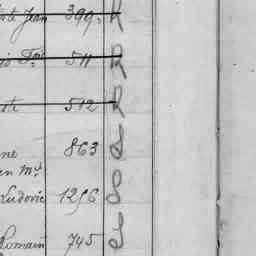 Jean 399. R
511 R
512 R
ne 863 S
en Md
Ludovic 1256 S
Romain 745 S